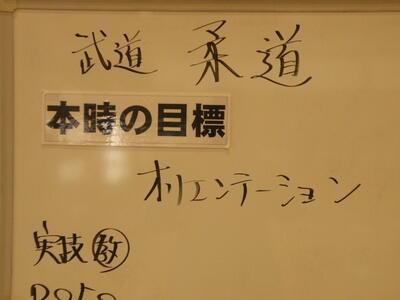 武道 柔道
本時の目標
オリエンテーション
実技 教